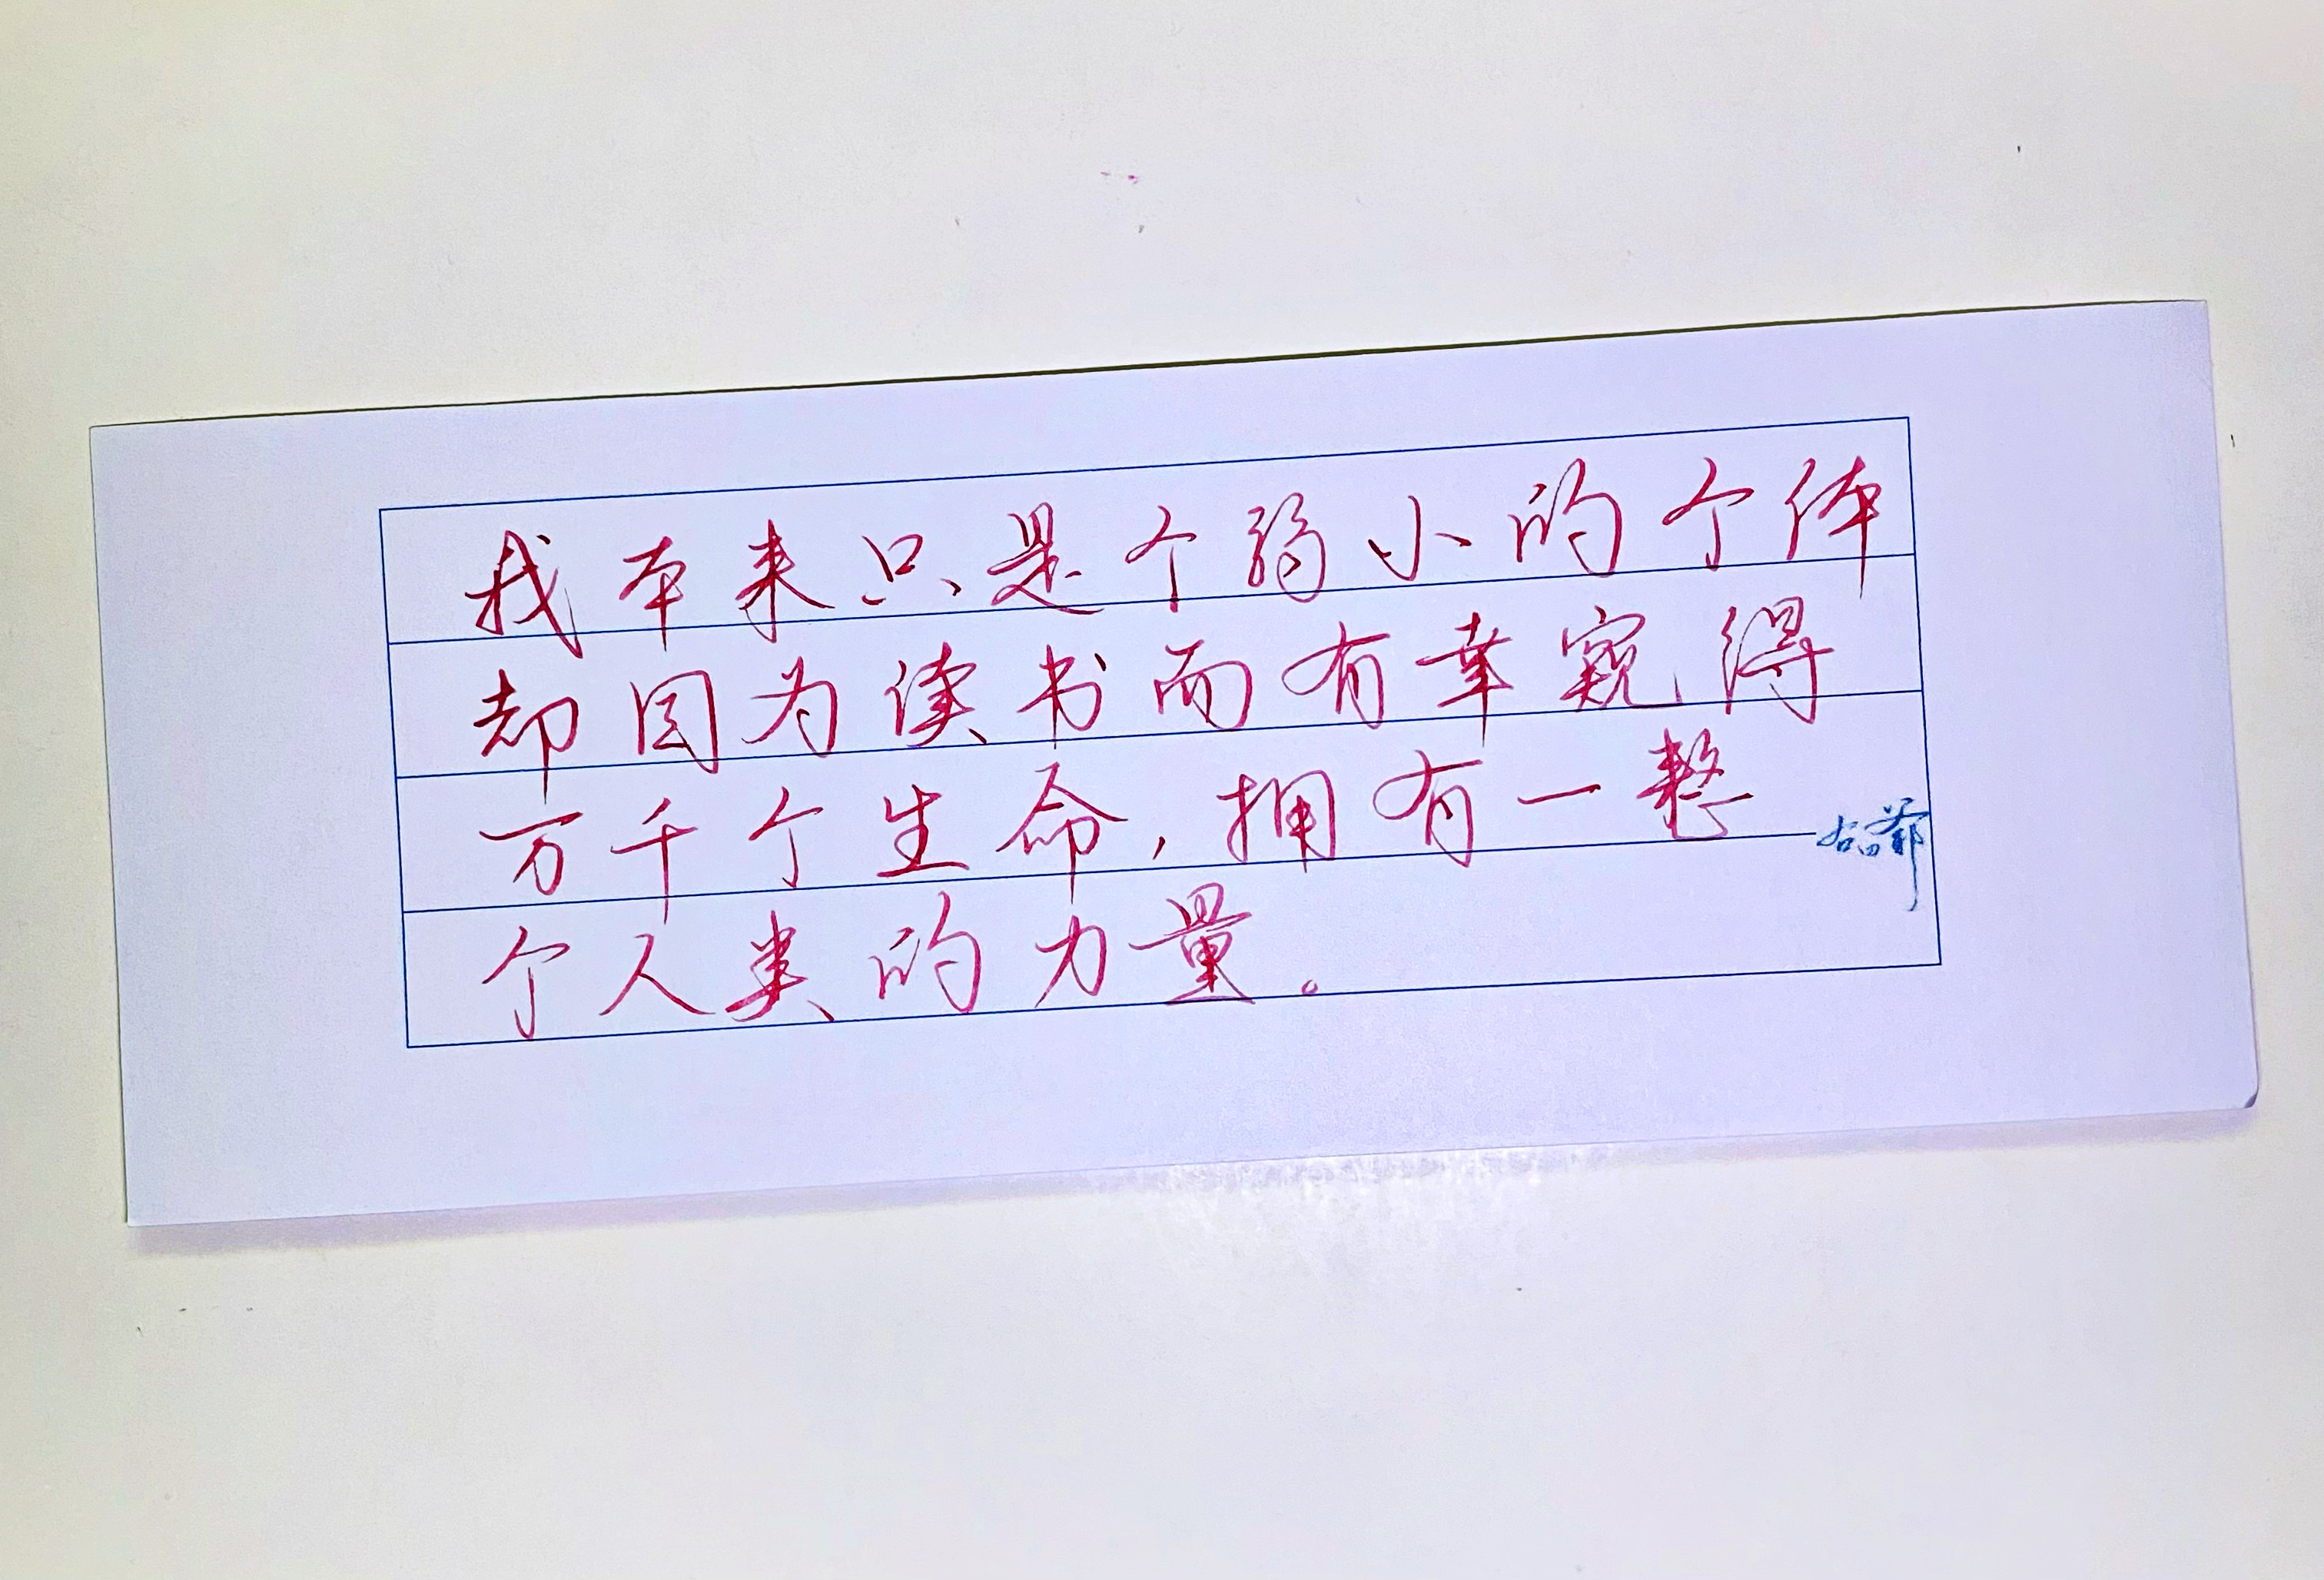 我本来只是个弱小的个体
却因为读书而有幸窥得
万千个生命，拥有一整
个人类的力量。